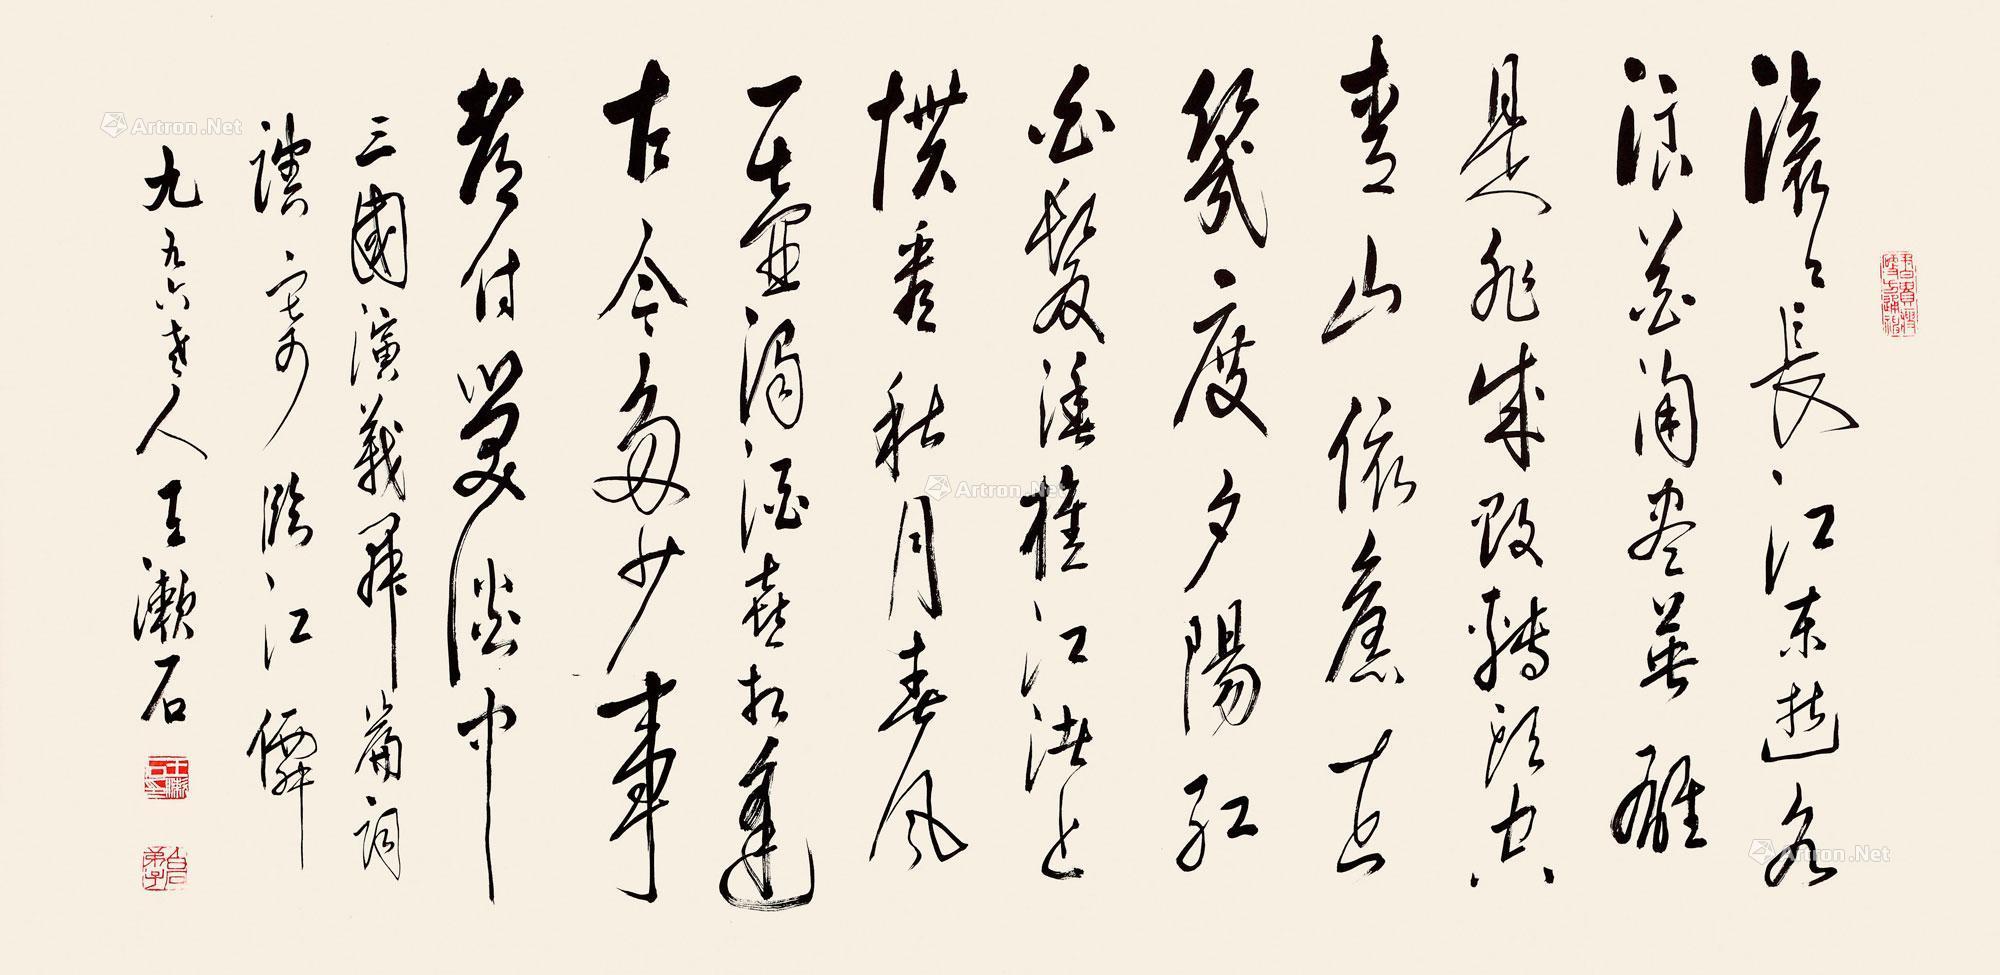 滚々長江東逝水
浪花淘尽英雄
是非成敗轉頭空
青山依舊在
幾度夕陽紅
白髮漁樵江渚上
慣看秋月春風
一壺濁酒喜相逢
古今多少事
都付笑談中
三國演義開篇詞
調寄臨江僊
九五六老人王漱石
王漱石印
白石弟子
Artron.Net
Artron.Net
Artron.Net